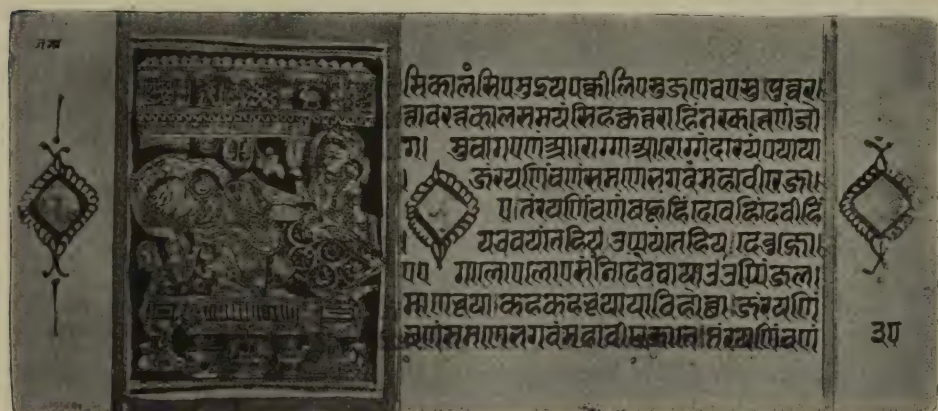 सिकालंसिपमुइयपक्कीलिएसुजणवएसुपुव्वर।
त्तावरत्तकालसमयंसिहत्थुत्तराहिंनरकत्तेणंजो
ग। मुवागएणंआरोग्गाआरोग्गंदारयंपयाया
। जंरयणिंचणंसमणेभगवंमहावीरेजा।
ए।तंरयणिंचणंबहूहिंदेवेहिंदेवीहिं
यउवयंतेहिय उप्पयंतेहिय देवुज्जो।
एए गालोएलोए उप्पिंजल।
माणभूया कहकह भूयायाविहोत्था।जंरयणिं
चणंसमणेभगवंमहावीरे तंरयणिंचणं
३५